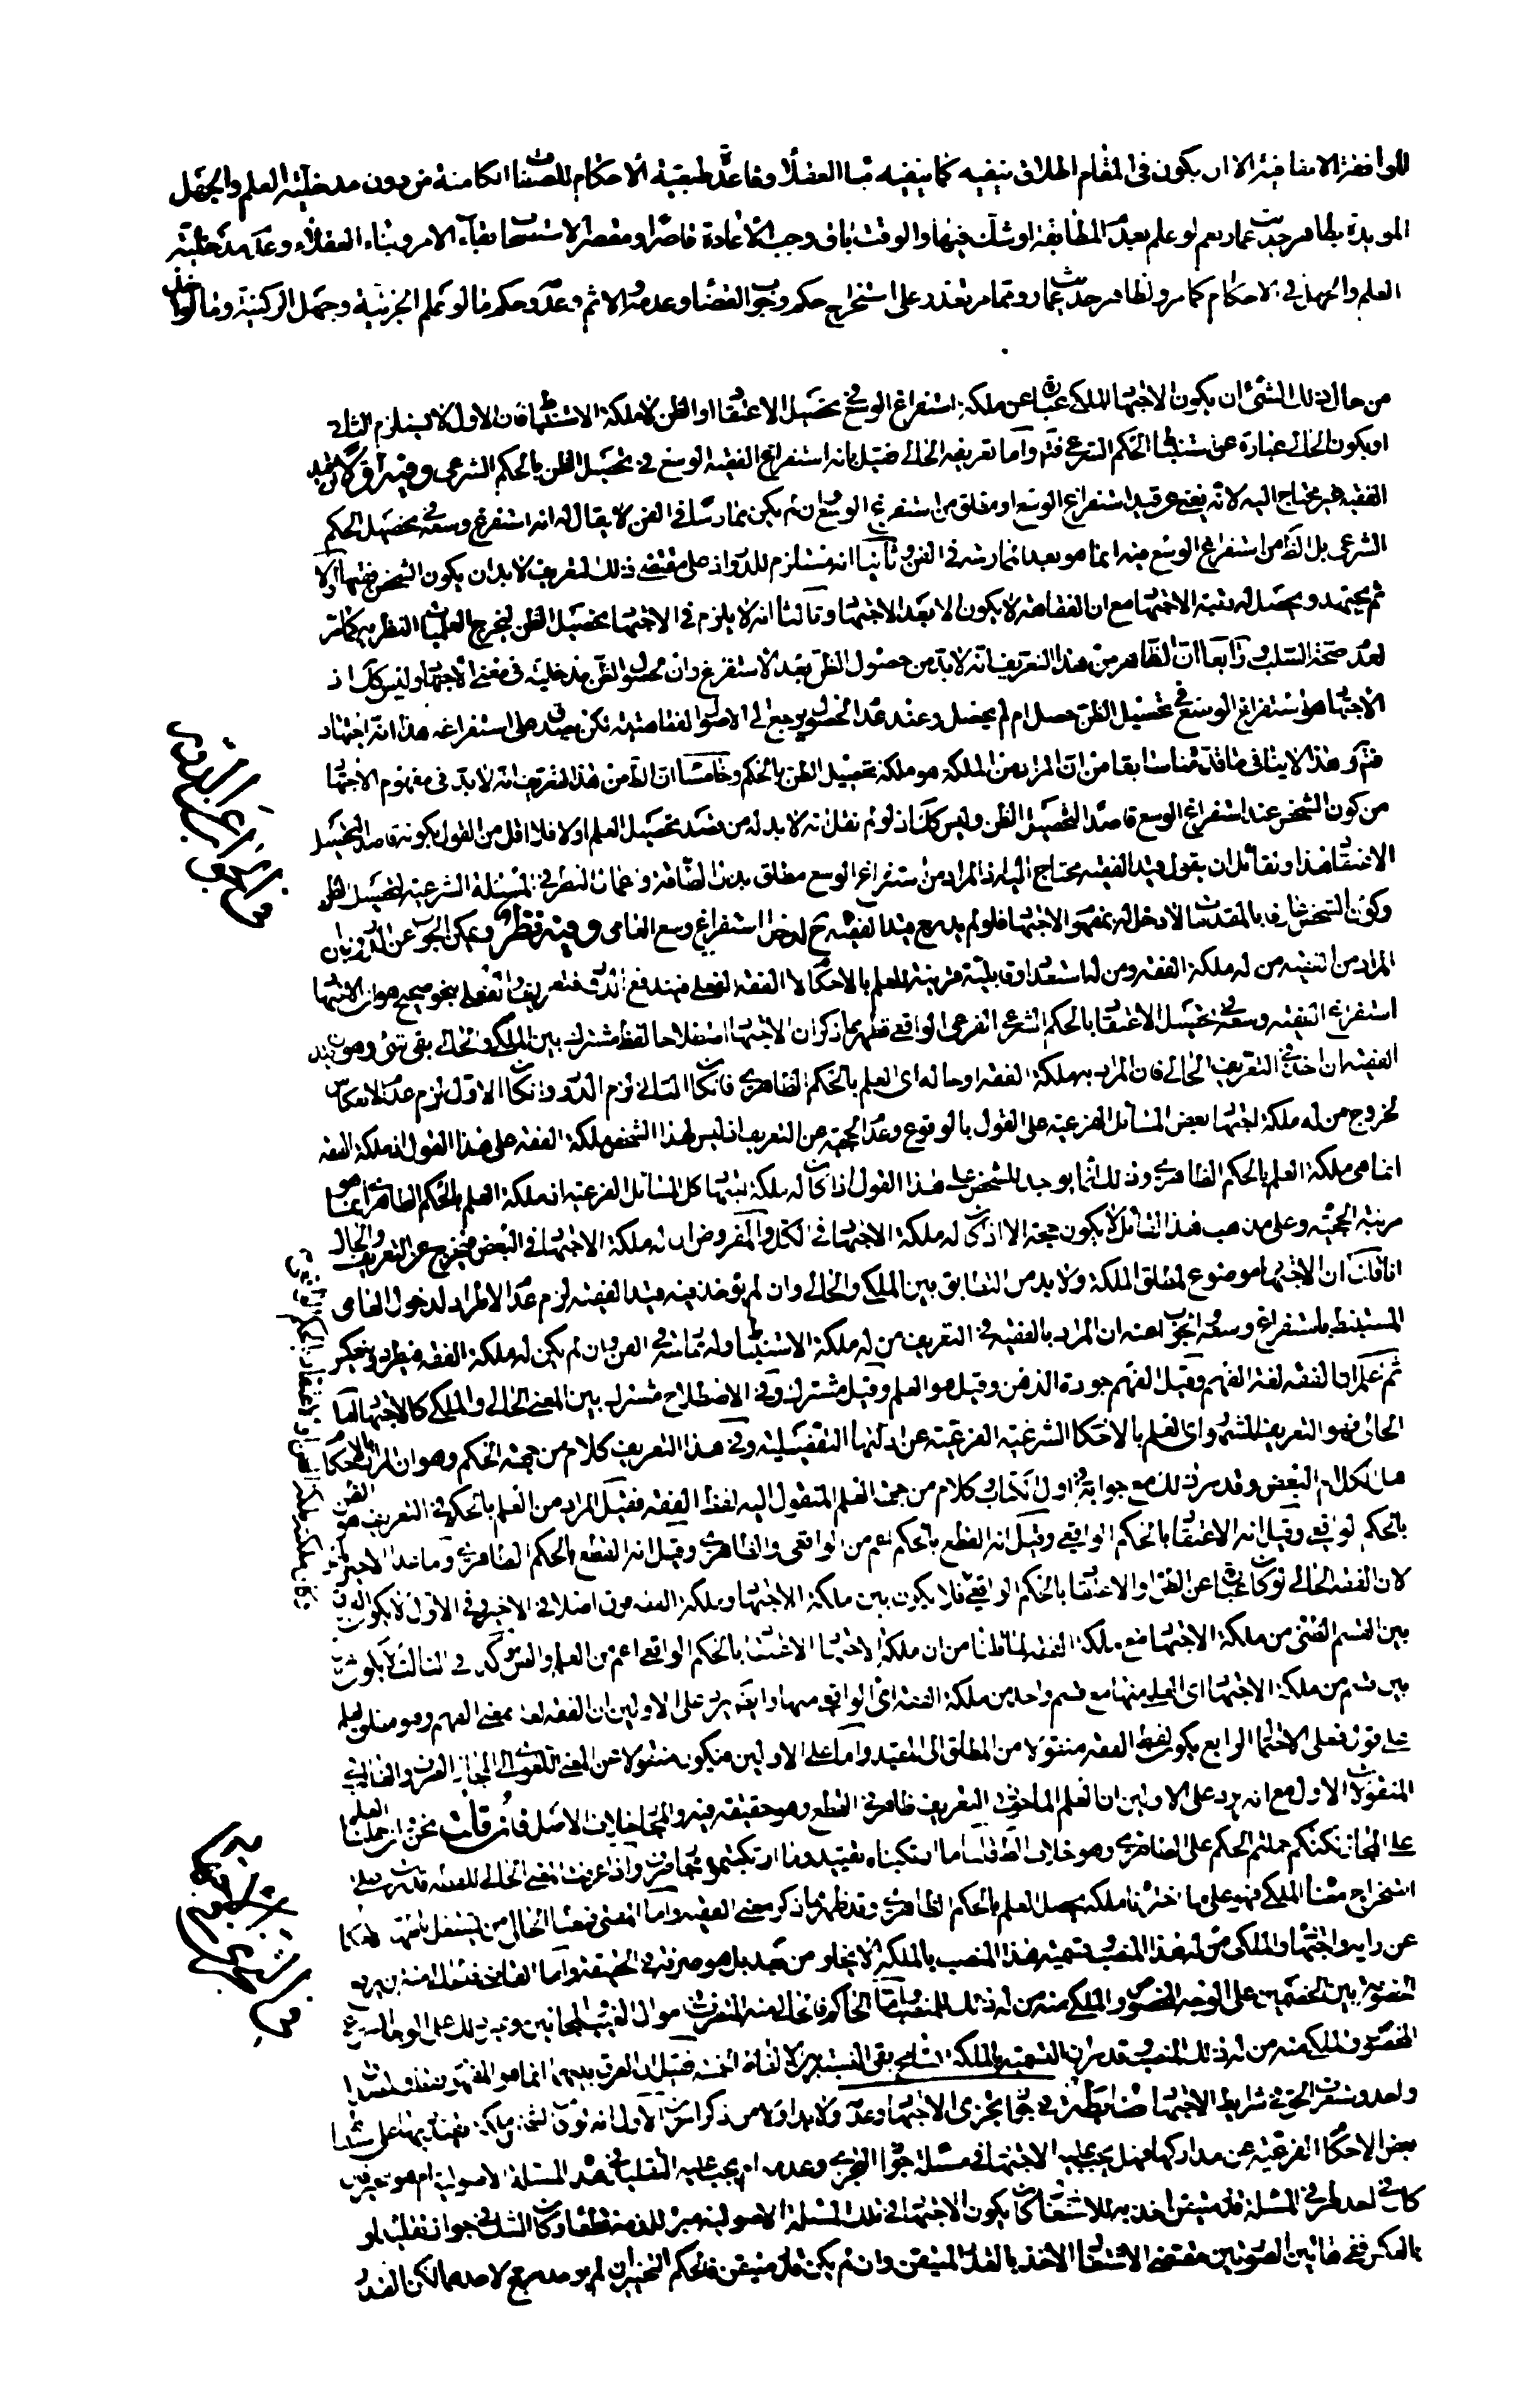 للموافقة الامنافية الا ان يكون في المقام اطلاق ينفيه كما ينفيه بناء العقلاء وقاعدة طبقية الاحكام للصفات الكامنة من دون مدخلية العلم والجهل
المويدة بظاهر حديث عمار نعم لو علم بعدم المطابقة او شك فيها والوقت باق وجب الاعادة قاصرا ومقصرا لاستصحاب بقاء الامر وبناء العقلاء وعدم مدخلية
العلم والجهل في الاحكام كما مر ولظاهر حديث عمار ومما مر تقدر على استخراج حكم وجوب القضاء وعدمه والاثم وعدمه وحكم ما لو علم الجزئية وجهل الركنية وما لو
من حال ذلك الشئ ان يكون الاجتهاد الملكي عبارة عن ملكة استفراغ الوسع في تحصيل الاعتقاد او الظن لا ملكة الاستنباط فان الاول لا يستلزم الثاني
او يكون الحالي عبارة عن استنباط الحكم الشرعي فتدبر واما تعريفه الحالي فقيل بانه استفراغ الفقيه الوسع في تحصيل الظن بالحكم الشرعي وفيه اولا ان قيد
الفقيه غير محتاج اليه لانه يغني عن قيد استفراغ الوسع او مطلق من استفرغ الوسع ان لم يكن ممارسا في الفن لا يقال له انه استفرغ وسعه في تحصيل الحكم
الشرعي بل الظ من استفراغ الوسع فيه انما هو بعد الممارسة في الفن وثانيا انه مستلزم للدور اذ على مقتضى ذلك التعريف لا بد ان يكون الشخص فقيها اولا
ثم يجتهد ويحصل له رتبة الاجتهاد مع ان الفقاهة لا يكون الا بعد الاجتهاد وثالثا انه لا يلزم في الاجتهاد تحصيل الظن ليخرج العلميات النظرية كما مر
لعدم صحة السلب ورابعا ان الظاهر من هذا التعريف انه لا بد من حصول الظن بعد الاستفراغ وان لحصول الظن مدخلية في معنى الاجتهاد وليس كك اذ
الاجتهاد هو استفراغ الوسع في تحصيل الظن حصل ام لم يحصل وعند عدم الحصول يرجع الى الاصول الفقاهتية لكن يصدق على استفراغه هذا انه اجتهاد
فتدبر وهذا لا ينافي ما قدمنا سابقا من ان المراد من الملكة هو ملكة تحصيل الظن بالحكم وخامسا ان الظ من هذا التعريف انه لا بد في مفهوم الاجتهاد
من كون الشخص عند استفراغ الوسع قاصدا لتحصيل الظن وليس كك اذ لو لم نقل انه لا بد له من قصد تحصيل العلم اولا فلا اقل من القول بكونه قاصدا لتحصيل
الاعتقاد هذا ولقائل ان يقول قيد الفقيه محتاج اليه اذ المراد من استفراغ الوسع مطلق بذل الطاقة وامعان النظر في المسئلة الشرعية لتحصيل الظن
وكون الشخص عارفا بالمقدمات لا دخل له بمفهوم الاجتهاد فلو لم يدرج قيد الفقيه ح لدخل استفراغ وسع العامي وفيه نظر ويمكن الجواب عن الدور بان
المراد من الفقيه من له ملكة الفقه ومن له استعداد وقابلية قريبة للعلم بالاحكام لا الفقه الفعلي فيندفع الدور فتعريف الفعلي بنحو صحيح هو ان الاجتهاد
استفراغ الفقيه وسعه في تحصيل الاعتقاد بالحكم الشرعي الفرعي الواقعي فظهر بما ذكر ان الاجتهاد اصطلاحا لفظ مشترك بين الملكي والحالي بقى شئ وهو ان قيد
الفقيه ان اخذ في التعريف الحالي فان المراد به ملكة الفقه او حاله اى العلم بالحكم الظاهري فان كان الثاني لزم الدور وان كان الاول لزم عدم الانعكاس
لخروج من له ملكة اجتهاد بعض المسائل الفرعية على القول بالوقوع وعدم الحجية عن التعريف اذ ليس لهذا الشخص ملكة الفقه على هذا القول اذ ملكة الفقه
انما هي ملكة العلم بالحكم الظاهري وذلك انما يوجد للشخص على هذا القول اذا كان له ملكة اجتهاد كل المسائل الفرعية اذ ملكة العلم بالحكم الظاهري انما هو
مرتبة الحجية وعلى مذهب هذا القائل لا يكون حجة الا اذا كان له ملكة الاجتهاد في الكل والمفروض ان له ملكة الاجتهاد في البعض فيخرج عن التعريف والحال
انا قلنا ان الاجتهاد موضوع لمطلق الملكة ولا بد من التطابق بين الملكي والحالي وان لم يؤخذ فيه قيد الفقيه لزم عدم الاطراد لدخول العامي
المستنبط باستفراغ وسعه والجواب عنه ان المراد بالفقيه في التعريف من له ملكة الاستنباط وله ممارسة في الفن وان لم يكن له ملكة الفقه فيطرد وينعكس
ثم اعلم ان الفقه لغة الفهم وقيل الفهم جودة الذهن وقيل هو العلم وقيل مشترك وفي الاصطلاح مشترك بين المعنى الحالي والملكي كالاجتهاد اما
الحالي فهو التعريف المشهور اى العلم بالاحكام الشرعية الفرعية عن ادلتها التفصيلية وفي هذا التعريف كلام من جهة الحكم وهو ان المراد بالاحكام
هل الكل ام البعض وقد مر ذلك مع جوابه في اول الكتاب وكلام من جهة العلم المنقول اليه لفظ الفقه فقيل المراد من العلم بالحكم في التعريف هو الظن
بالحكم الواقعي وقيل انه الاعتقاد بالحكم الواقعي وقيل انه القطع بالحكم اعم من الواقعي والظاهري وقيل انه القطع بالحكم الظاهري وما عدا الاخير مردود
لان الفقه الحالي لو كان عبارة عن الظن او الاعتقاد بالحكم الواقعي فلا يكون بين ملكة الاجتهاد وملكة الفقه فرق اصلا في الاخير وفي الاول لا يكون الفرق
بين القسم الظني من ملكة الاجتهاد مع ملكة الفقه لما قلنا من ان ملكة الاجتهاد الاعتقاد بالحكم الواقعي اعم من العلم والظن وكك في الثالث لا يكون فرق
بين قسم من ملكة الاجتهاد اى العلم منها مع قسم واحد من ملكة الفقه اى الواقعي منها وايضا يرد على الاولين ان الفقه لغة بمعنى الفهم وهو مطلق العلم
على قول فعلى الاحتمال الرابع يكون لفظ الفقه منقولا من المطلق الى المقيد واما على الاولين فيكون منقولا عن المعنى اللغوي الى المجاز العرفي والغالب في
المنقولات الاول مع انه يرد على الاولين ان العلم الماخوذ في التعريف ظاهر في القطع وهو حقيقة فيه والمجاز خلاف الاصل فان قلت نحن ان حملنا العلم
على المجاز لكنكم حملتم الحكم على الظاهري وهو خلاف الظ قلنا ما ارتكبناه تقييد وما ارتكبتموه مجاز واذ عرفت المعنى الحالي للفقه قدرت على
استخراج معناه الملكي فهو على ما اخترناه ملكة يحصل العلم بالحكم الظاهري وقد ظهر مما ذكر معنى الفقيه واما المفتي فمعناه الحالي من يشتغل بافتاء الاحكام
عن رايه واجتهاده والملكي من له هذا المنصب وتسمية هذا المنصب بالملكة لا يخلو من بعد بل هو صرف في الحقيقة واما القاضي فمعناه من يرفع
الخصومة بين الخصمين على الوجه المخصوص والملكي منه من له ذلك المنصب واما الحاكم فالحالي منه المتصرف في اموال الغيب والمجانين وغير ذلك على الوجه الشرعي
المخصوص والملكي منه من له ذلك المنصب وقد مر ان التسمية بالملكة تسامح بقى النسبة بين الالفاظ الخمسة فقيل ان الفرق بينها انما هو المفهوم فقط والمصداق
واحد وستعرف الحق في شرايط الاجتهاد ضابطة في جواز تجزى الاجتهاد وعدمه ولا بد اولا من ذكر امور الاول انه لو كان لشخص ملكة يقتدر بها على استنباط
بعض الاحكام الفرعية عن مداركها فهل يجب عليه الاجتهاد في مسئلة جواز التجزي وعدمه ام يجب عليه التقليد في هذه المسئلة الاصولية ام هو مخير فيه
كان في احد طرفي المسئلة قدر متيقن اخذ به للاشتغال كان يكون الاجتهاد في تلك المسئلة الاصولية مبرئ للذمة قطعا وكان الشك في جواز تقليده او
بالعكس ففي هاتين الصورتين مقتضى الاشتغال الاخذ بالقدر المتيقن وان لم يكن قدر متيقن فالحكم التخيير ان لم يوجد مرجح لاحدهما لكن القدر